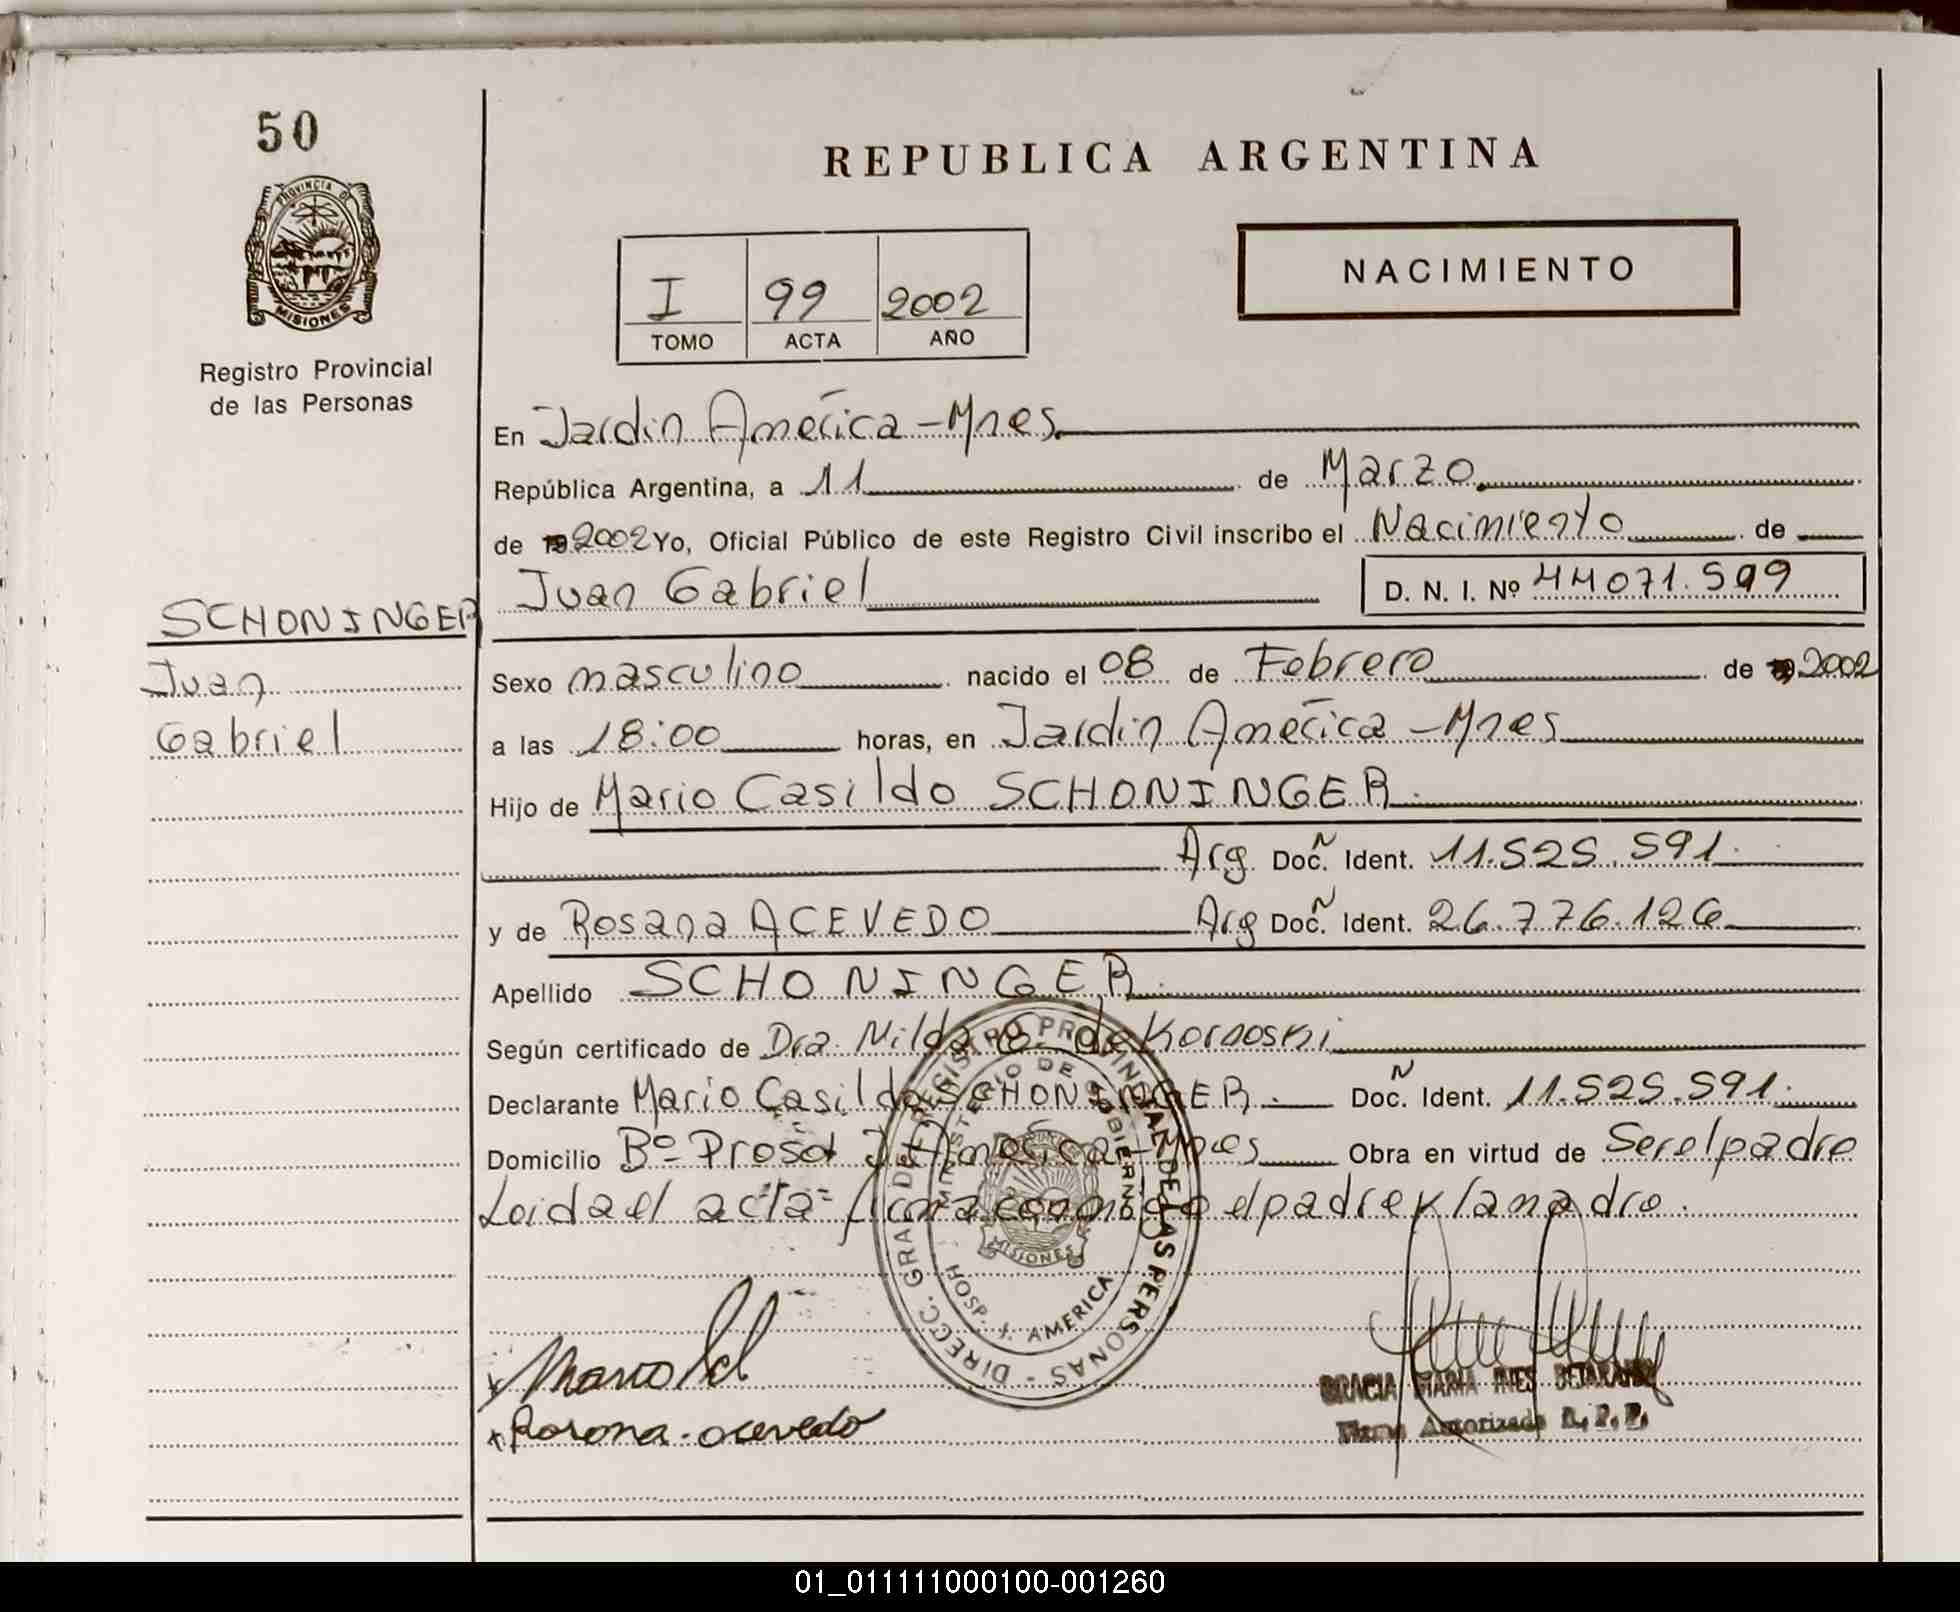 50
REPUBLICA ARGENTINA
PROVINCIA DE
MISIONES
Registro Provincial
de las Personas
NACIMIENTO
I 99 2002
TOMO ACTA AÑO
En Jardin América - Mnes
República Argentina, a 11 de Marzo
de 19 2002 Yo, Oficial Público de este Registro Civil inscribo el Nacimiento de
Juan Gabriel D. N. I. Nº 44071.599
SCHONINGER
Juan
Gabriel
Sexo masculino nacido el 08 de Febrero de 19 2002
a las 18:00 horas, en Jardin América - Mnes
Hijo de Mario Casildo SCHONINGER.
Arg Doc. Ident. 11.525.591.
y de Rosana ACEVEDO Arg Doc. Ident. 26.776.126
Apellido SCHONINGER.
Según certificado de Dra. Nilda G. de Kornoski
Declarante Mario Casildo SCHONINGER. Doc. Ident. 11.525.591.
Domicilio Bº Prosol J. América - Mnes Obra en virtud de Ser el padre
Leida el acta firma conmigo el padre y la madre.
DIRECC. GRAL. DEL REGISTRO PROVINCIAL DE LAS PERSONAS
MINISTERIO DE GOBIERNO
MISIONES
HOSP. J. AMERICA
x Mario Sch
x Rosana. acevedo
GRACIA MARIA INES
Firma Autorizada R.P.P.
01_011111000100-001260